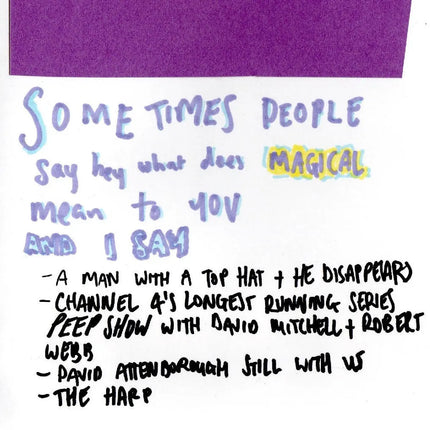 SOMETIMES PEOPLE
say hey what does MAGICAL
mean to YOU
AND I SAY
- A MAN WITH A TOP HAT + HE DISAPPEARS
- CHANNEL 4'S LONGEST RUNNING SERIES
PEEP SHOW WITH DAVID MITCHELL + ROBERT
WEBB
- DAVID ATTENBOROUGH STILL WITH US
- THE HARP